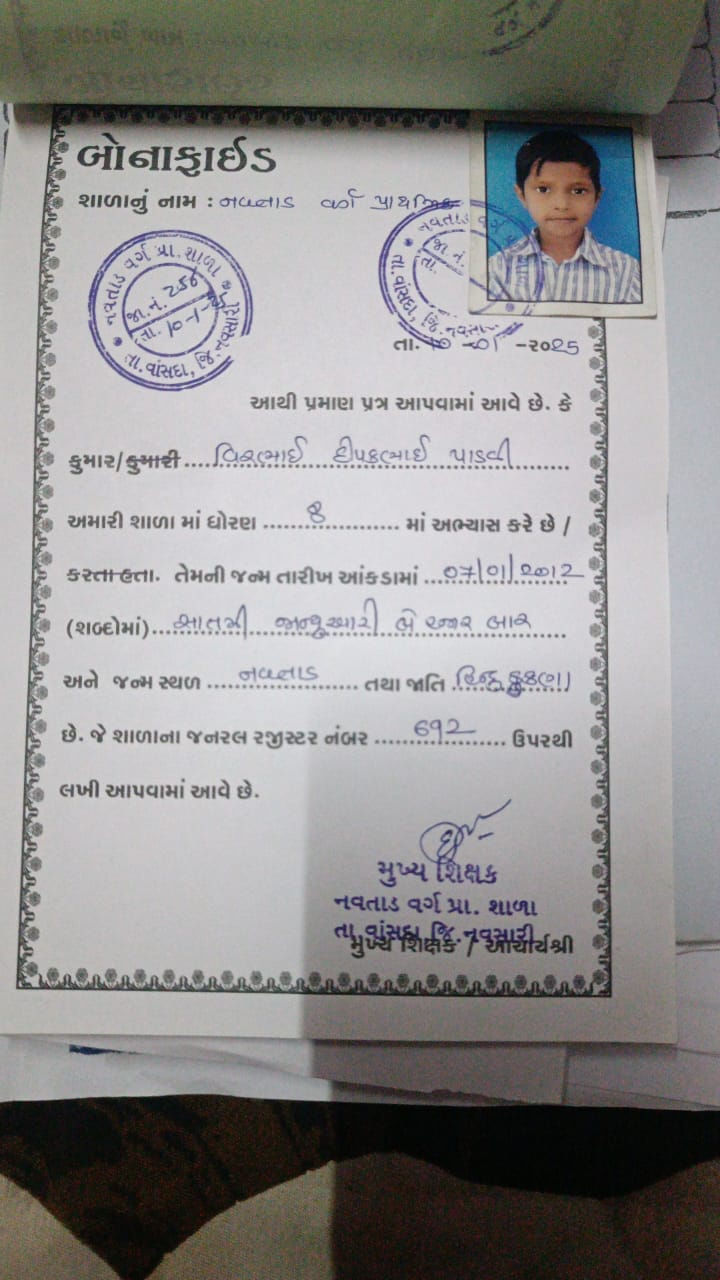 બોનાફાઈડ
શાળાનું નામ : નવતાડ વર્ગ પ્રાથમિક
નવતાડ વર્ગ પ્રા. શાળા
જા. નં. 254
તા. 10-1-25
તા. વાંસદા, જિ. નવસારી
નવતાડ વર્ગ પ્રા
જા. નં.
તા.
તા. વાંસદા, જિ. નવસા
તા. 10 -01 -૨૦25
આથી પ્રમાણ પ્રત્ર આપવામાં આવે છે. કે
કુમાર/કુમારી વિરભાઈ દીપકભાઈ પાડવી
અમારી શાળા માં ધોરણ 8 માં અભ્યાસ કરે છે /
કરતા હતા. તેમની જન્મ તારીખ આંકડામાં 07/01/2012
(શબ્દોમાં) સાતમી જાન્યુઆરી બે હજાર બાર
અને જન્મ સ્થળ નવતાડ તથા જાતિ હિન્દુ કુકણા
છે. જે શાળાના જનરલ રજીસ્ટર નંબર 692 ઉપરથી
લખી આપવામાં આવે છે.
મુખ્ય શિક્ષક
નવતાડ વર્ગ પ્રા. શાળા
તા. વાંસદા જિ. નવસારી
મુખ્ય શિક્ષક / આચાર્યશ્રી